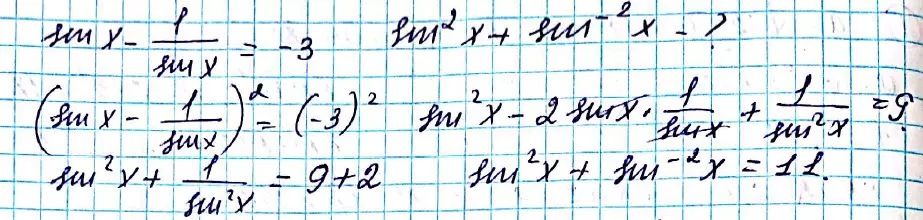 sin x - 1/sin x = -3 sin² x + sin⁻² x - ?
(sin x - 1/sin x)² = (-3)² sin² x - 2 sin x · 1/sin x + 1/sin² x = 9.
sin² x + 1/sin² x = 9 + 2 sin² x + sin⁻² x = 11.